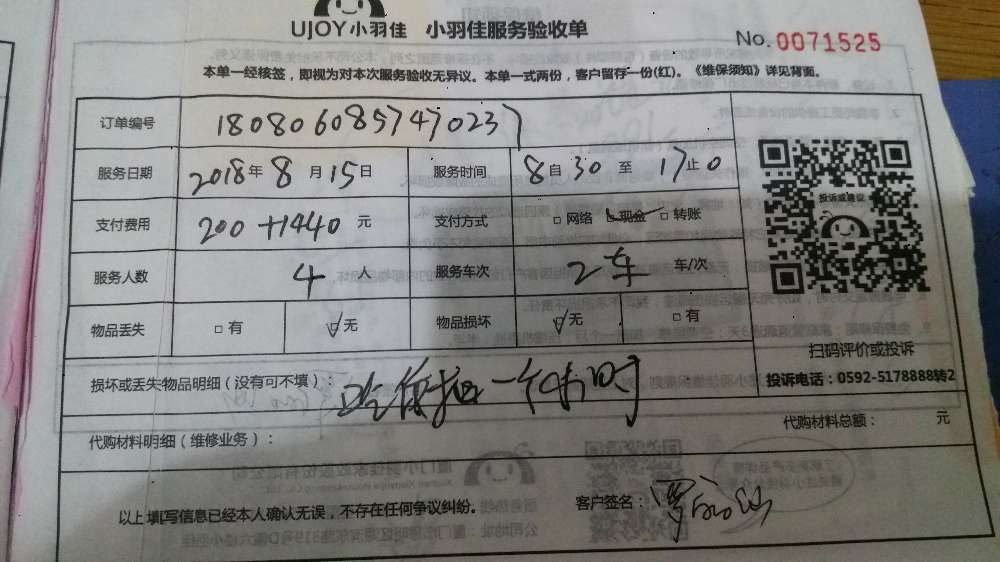 UJOY小羽佳 小羽佳服务验收单
No. 0071525
本单一经核签，即视为对本次服务验收无异议。本单一式两份，客户留存一份(红)。《维保须知》详见背面。
订单编号 1808060857470237
服务日期 2018年8月15日 服务时间 8自30至17止0
支付费用 200+1440元 支付方式 □网络 ☑现金 □转账
服务人数 4人 服务车次 2车 车/次
物品丢失 □有 ☑无 物品损坏 ☑无 □有
投诉或建议
扫码评价或投诉
投诉电话：0592-5178888转2
损坏或丢失物品明细（没有可不填）： 一个小时
代购材料明细（维修业务）： 代购材料总额： 元
以上填写信息已经本人确认无误，不存在任何争议纠纷。 客户签名：